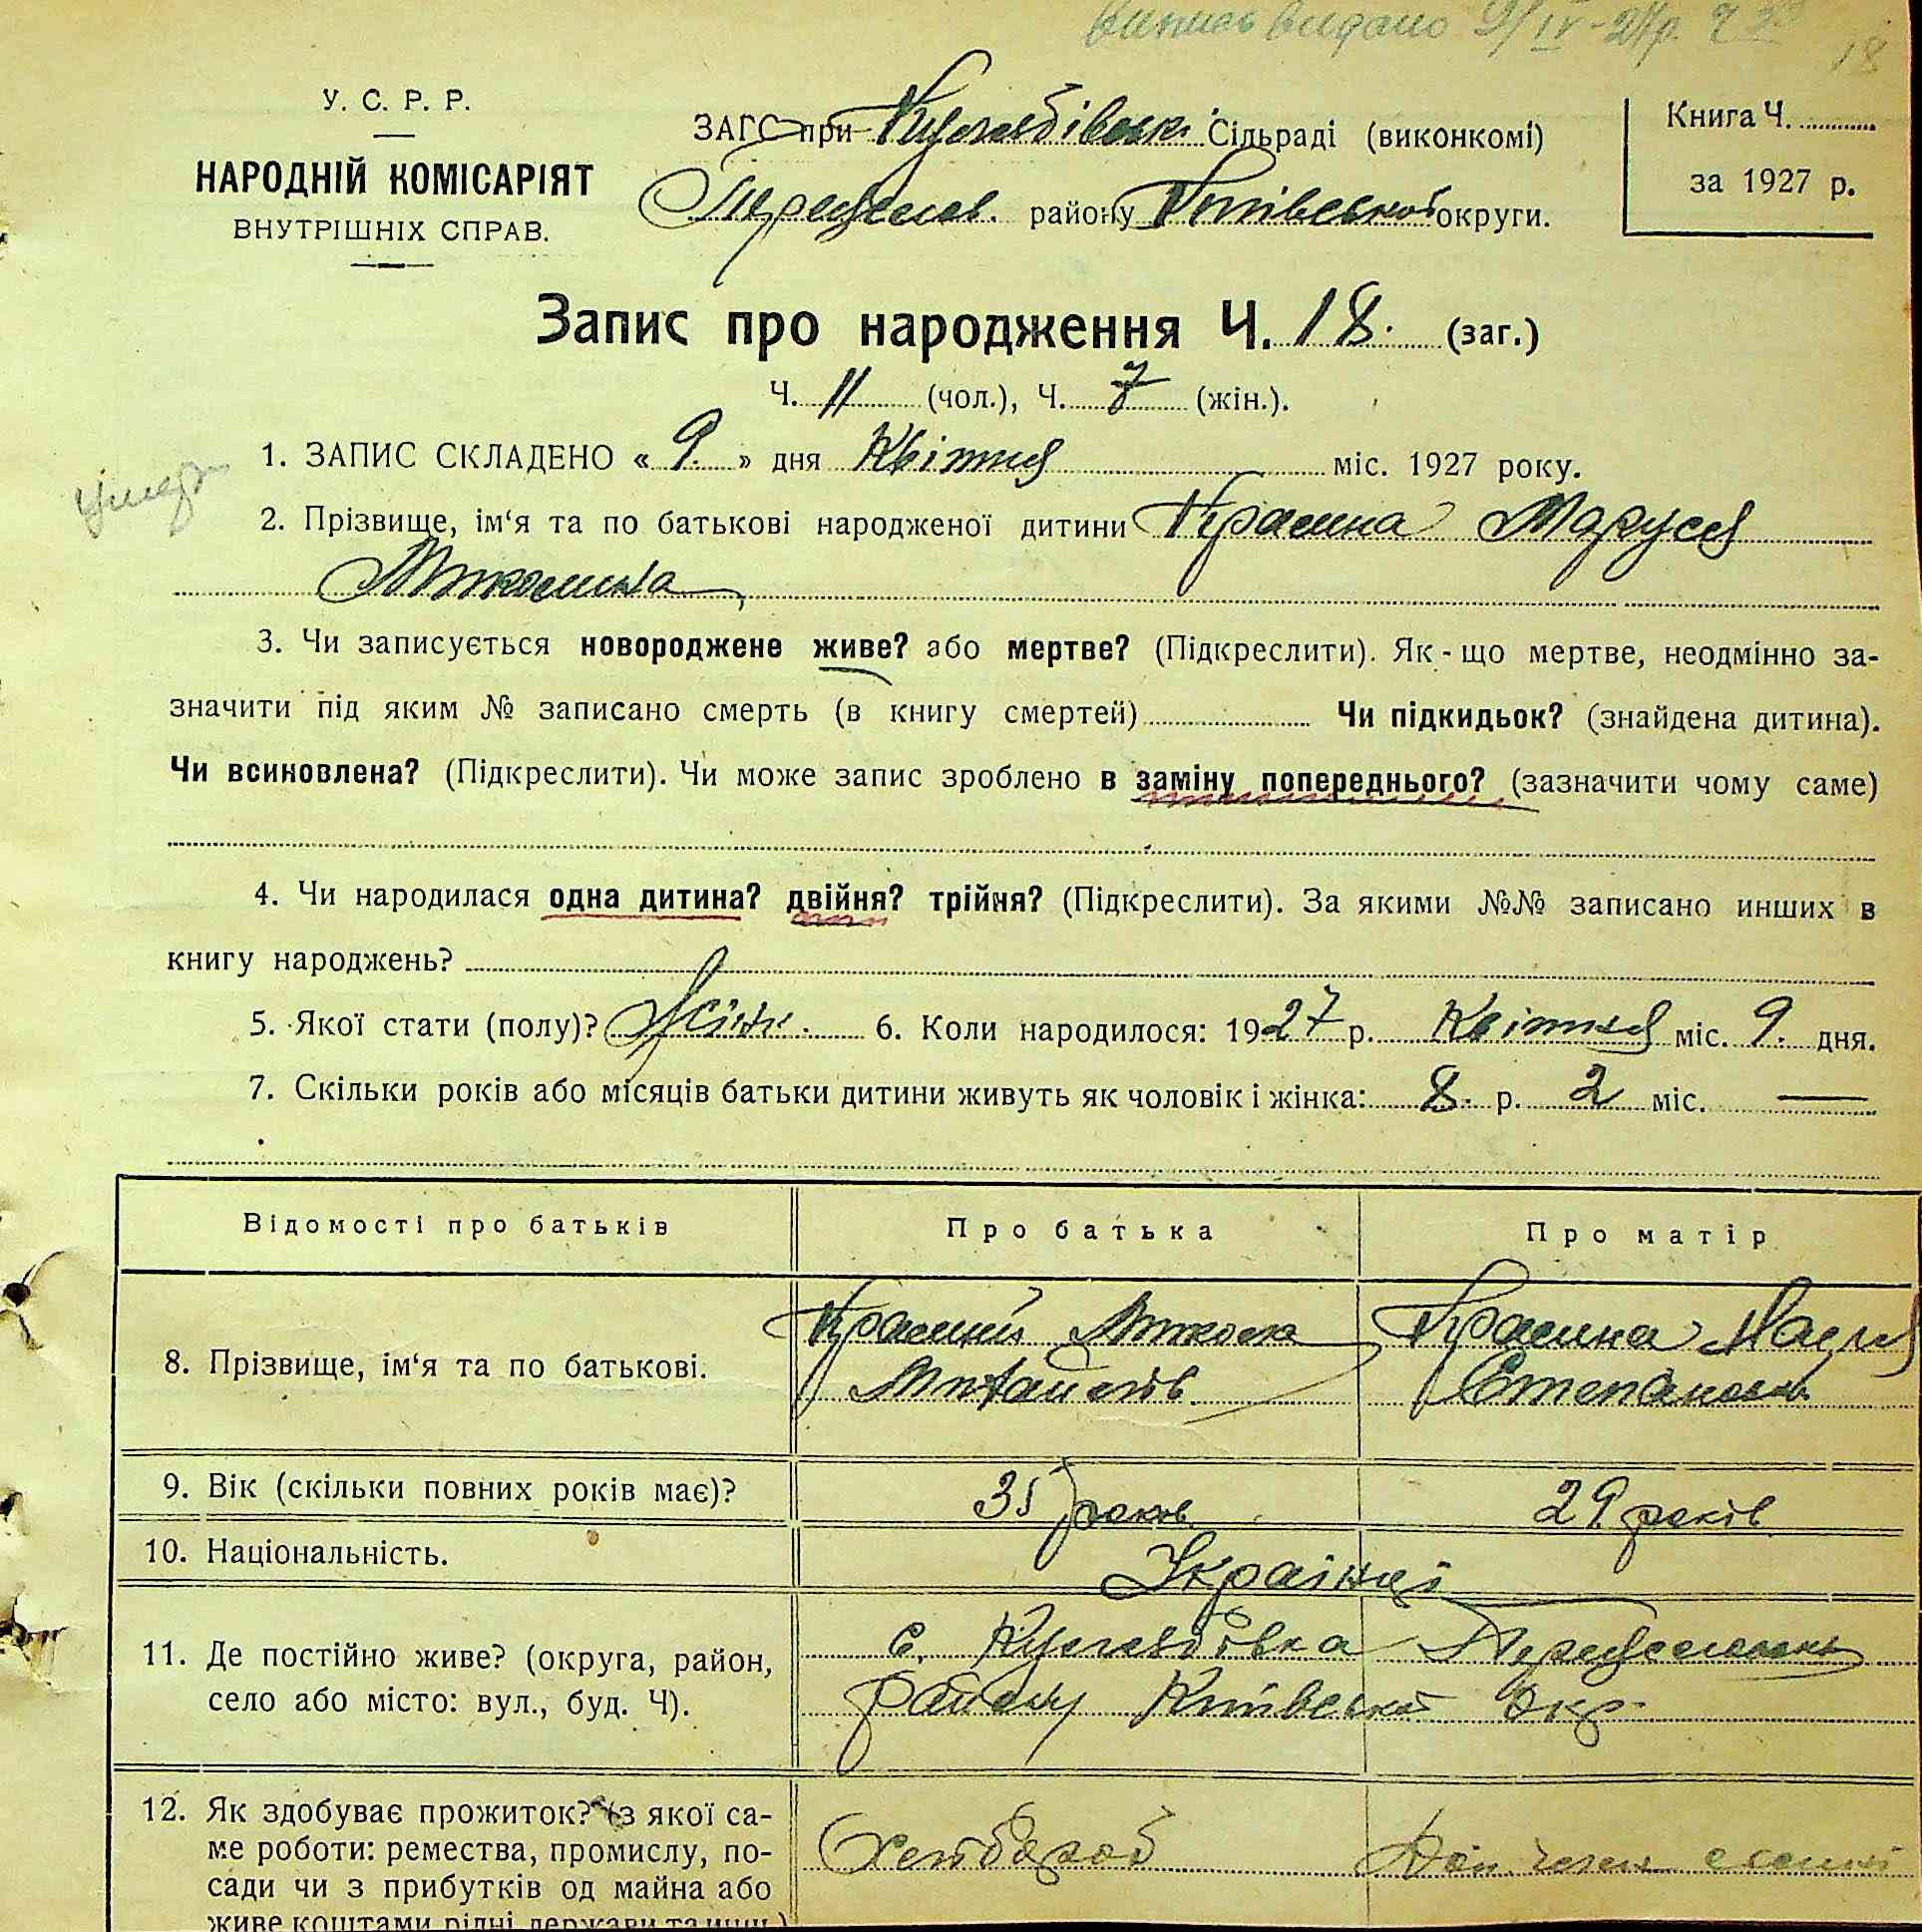 Випись видано 9/IV-27р. Ч 23
18
У. С. Р. Р.
НАРОДНІЙ КОМІСАРІЯТ
ВНУТРІШНІХ СПРАВ.
ЗАГС при Сільраді (виконкомі)
району Київської округи.
Книга Ч.
за 1927 р.
Запис про народження Ч. 18. (заг.)
Ч. 11 (чол.), Ч. 7 (жін.).
1. ЗАПИС СКЛАДЕНО « 9. » дня Квітня міс. 1927 року.
2. Прізвище, ім‘я та по батькові народженої дитини Маруся
3. Чи записується новороджене живе? або мертве? (Підкреслити). Як-що мертве, неодмінно за-
значити під яким № записано смерть (в книгу смертей) Чи підкидьок? (знайдена дитина).
Чи всиновлена? (Підкреслити). Чи може запис зроблено в заміну попереднього? (зазначити чому саме)
4. Чи народилася одна дитина? двійня? трійня? (Підкреслити). За якими №№ записано инших в
книгу народжень?
5. Якої стати (полу)? Жін. 6. Коли народилося: 1927 р. Квітня міс. 9. дня.
7. Скільки років або місяців батьки дитини живуть як чоловік і жінка: 8. р. 2 міс. —
Відомості про батьків Про батька Про матір
8. Прізвище, ім‘я та по батькові.
Степановна
9. Вік (скільки повних років має)? 35 років 29 років
10. Національність. Українці
11. Де постійно живе? (округа, район,
село або місто: вул., буд. Ч).
с.
району Київської Окр.
12. Як здобуває прожиток? (з якої са-
ме роботи: ремества, промислу, по-
сади чи з прибутків од майна або
живе коштами рідні держави та инш.)
Хлібороб